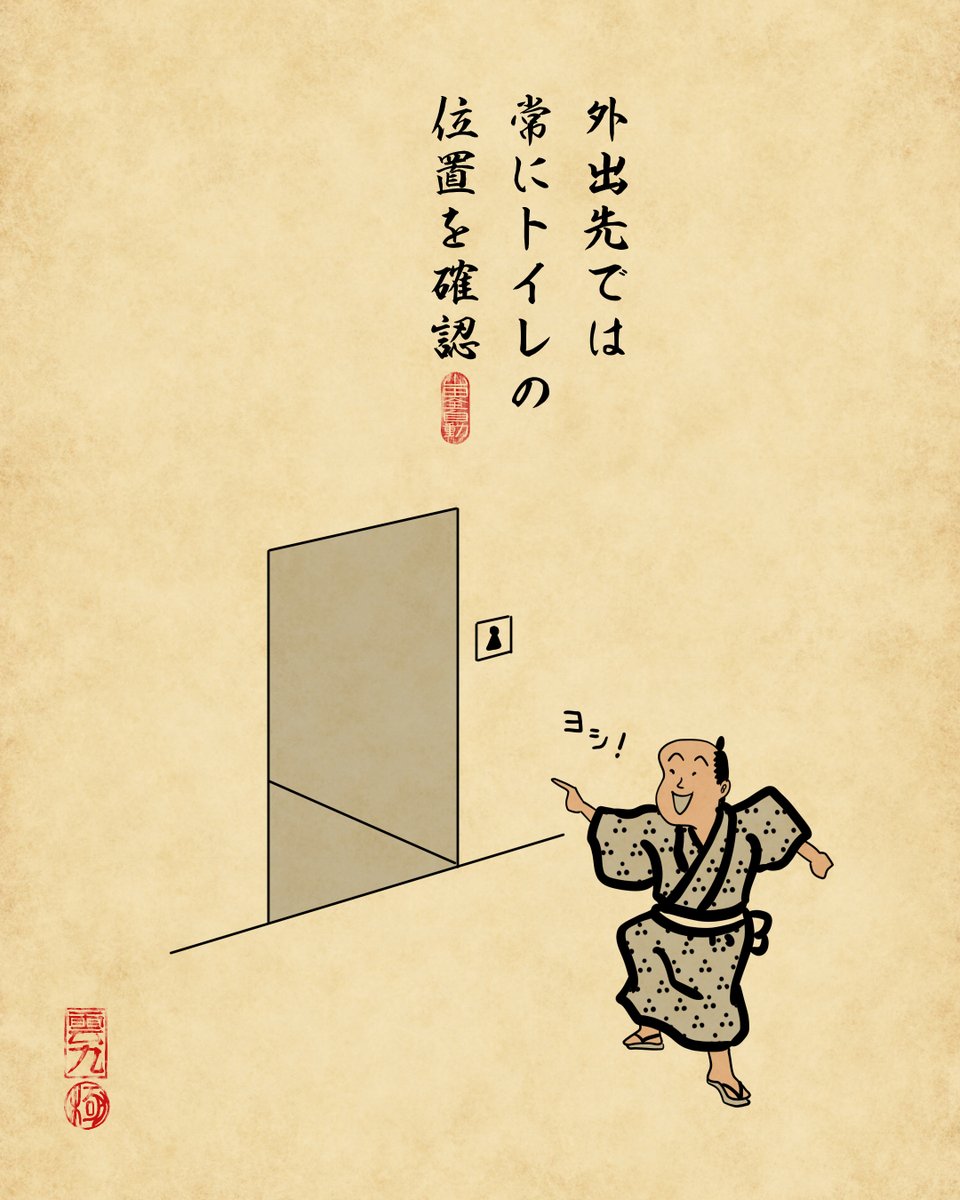 外出先では
常にトイレの
位置を確認
ヨシ！